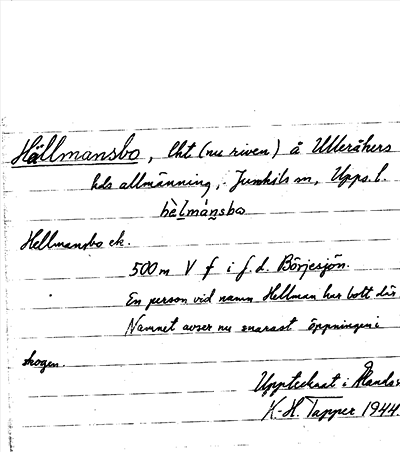 Hällmansbo, lht (nu riven) å Ulleråkers
hds allmänning, Jumkils sn, Upps. l.
hèlmánsbo
Hellmansbo ek.
500 m V f i f. d. Börjesjön.
En person vid namn Hellman har bott där
Namnet avser nu snarast öppningen i
skogen.
Upptecknat i Ålands
K.-H. Tapper 1944.